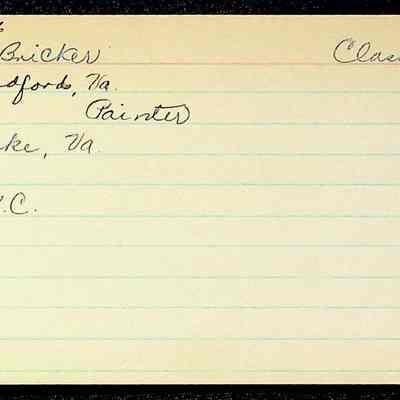 Bricker Clas
dfords, Va.
Painter
ke, Va.
.C.